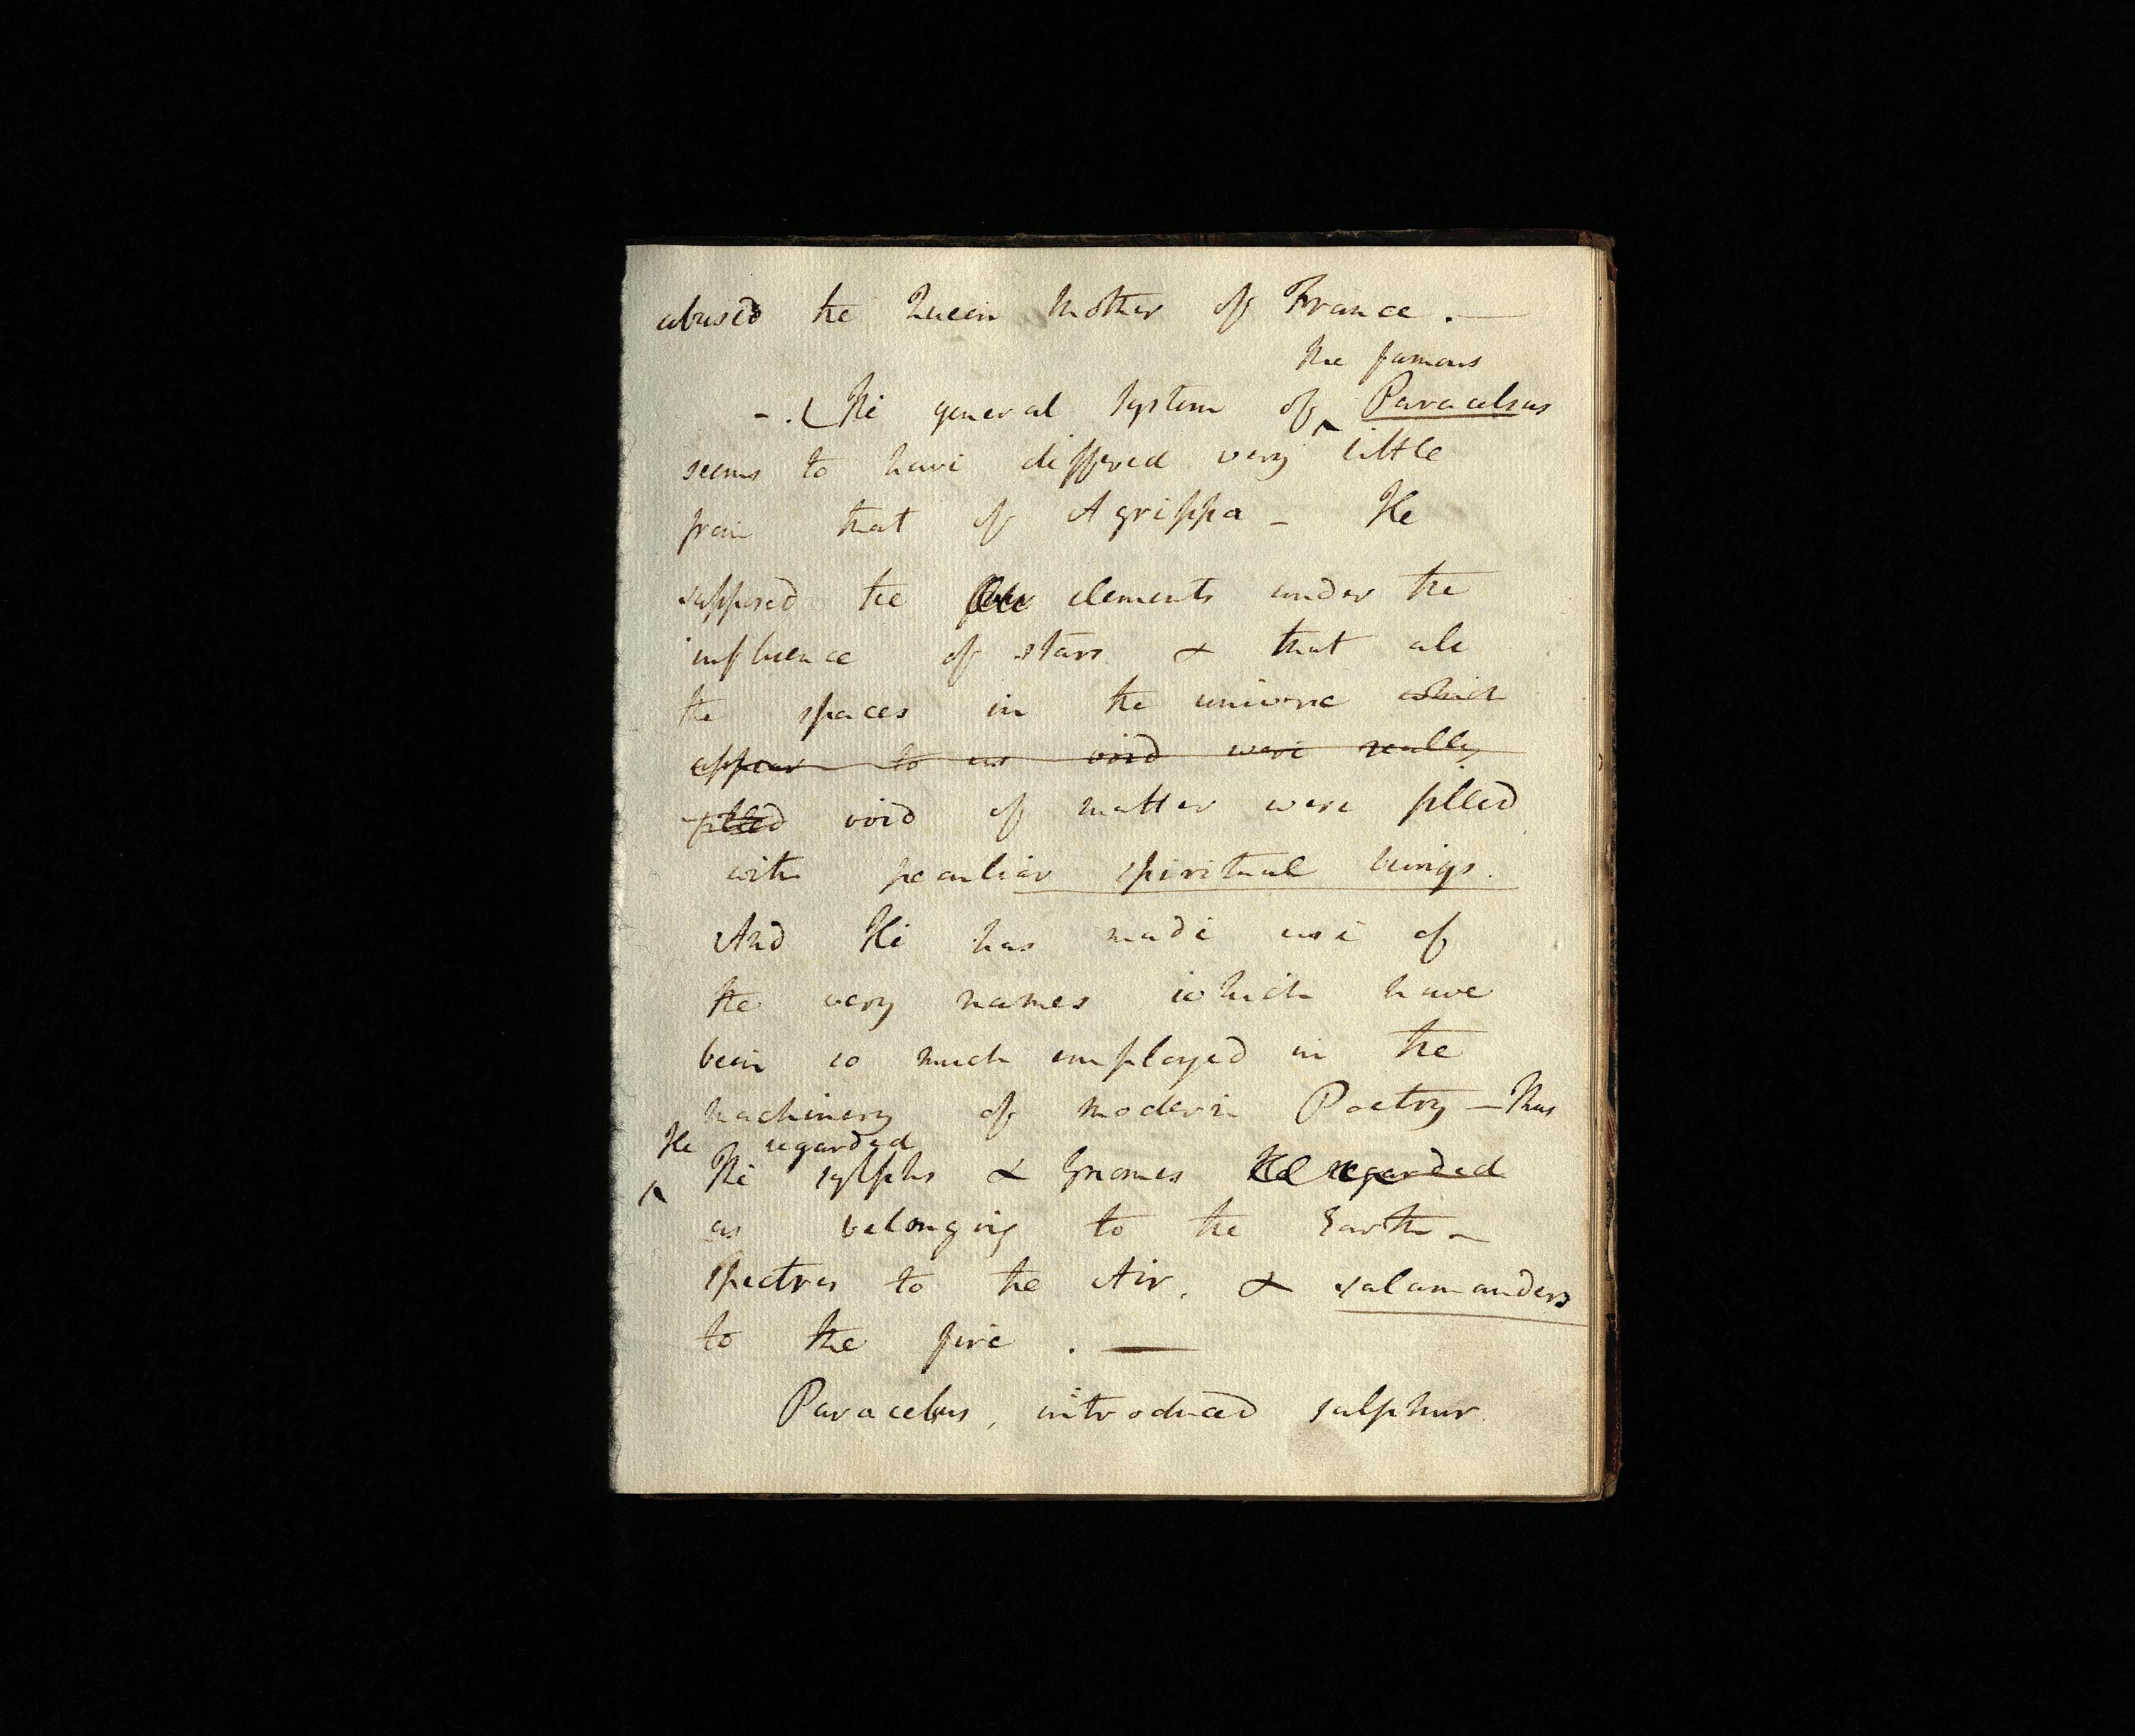 abused the Queen Mother of France . —
the famous
- . ( The general System of ‸ Paracelsus
seems to have differed very little
from that of Agrippa - He
supposed the elements under the
influence of stars & that all
the spaces in the universe which
appear to us void were really
filled void of matter were filled
with peculiar spiritual beings.
And He has made use of
the very names which have
been so much employed in the
machinery of modern Poetry — Thus
He regarded
‸ The sylphs & Gnomes He regarded
as belonging to the Earth -
Spectres to the Air, & salamanders
to the fire . —
Paracelsus, introduced sulphur